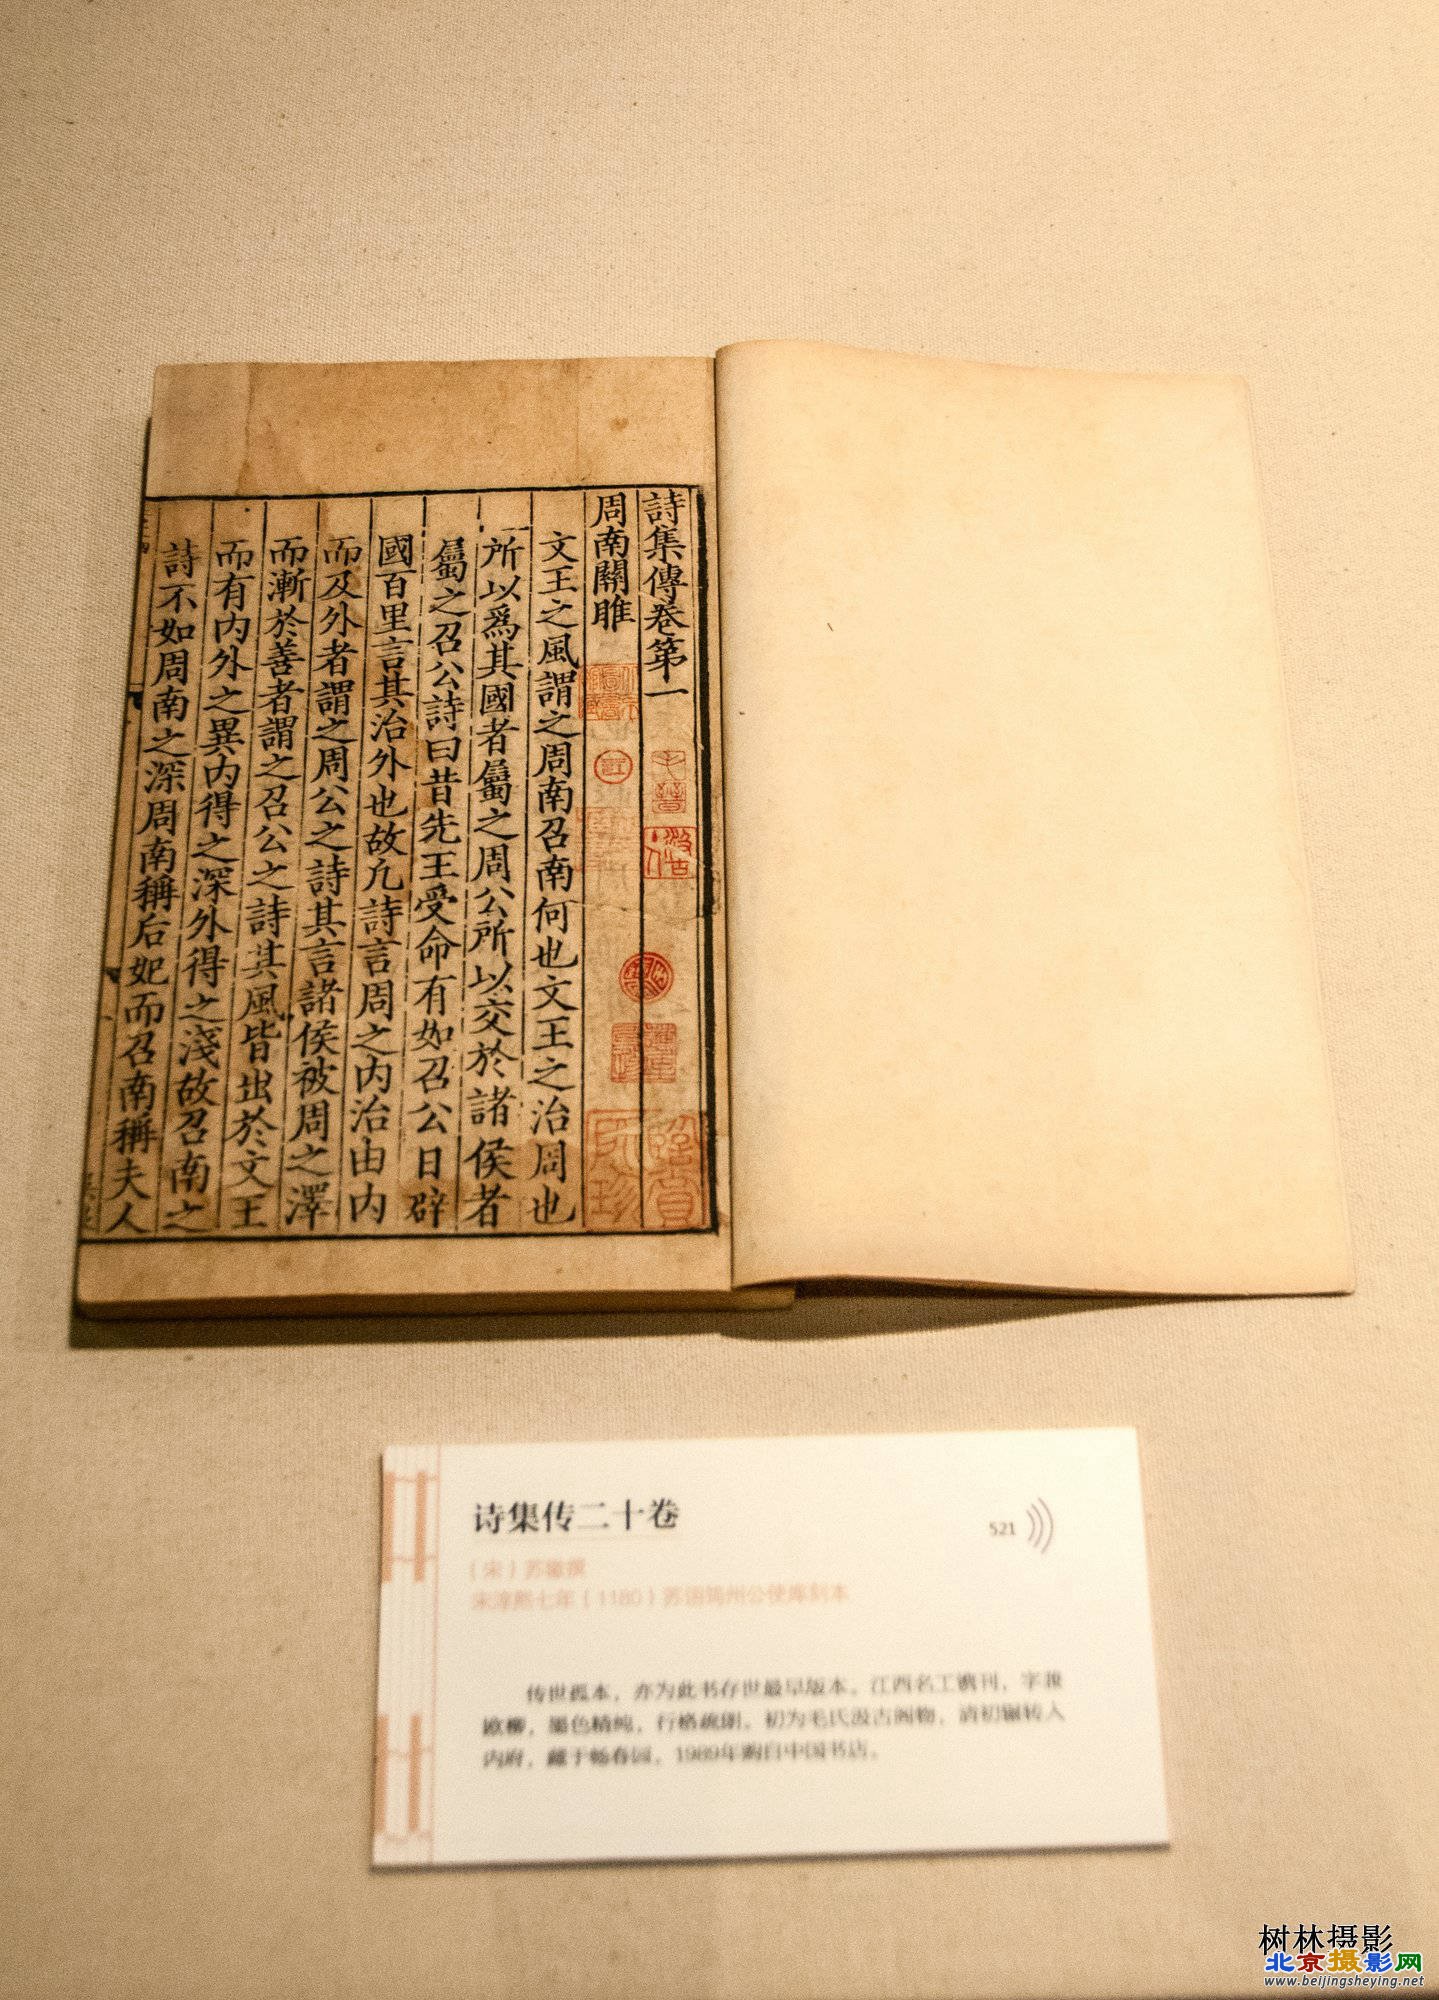 詩集傳卷第一
周南關雎
文王之風謂之周南召南何也文王之治周也
所以爲其國者屬之周公所以交於諸侯者
屬之召公詩曰昔先王受命有如召公日辟
國百里言其治外也故凢詩言周之内治由内
而及外者謂之周公之詩其言諸侯被周之澤
而漸於善者謂之召公之詩其風皆出於文王
而有内外之異内得之深外得之淺故召南之
詩不如周南之深周南稱后妃而召南稱夫人
毛晉
汲古
臨賞
诗集传二十卷
521
（宋）苏辙撰
宋淳熙七年（1180）苏诩筠州公使库刻本
传世孤本，亦为此书存世最早版本。江西名工镌刊，字兼
欧柳，墨色精纯，行格疏朗。初为毛氏汲古阁物，清初辗转入
内府，藏于畅春园，1989年购自中国书店。
树林摄影
北京摄影网
www.beijingsheying.net